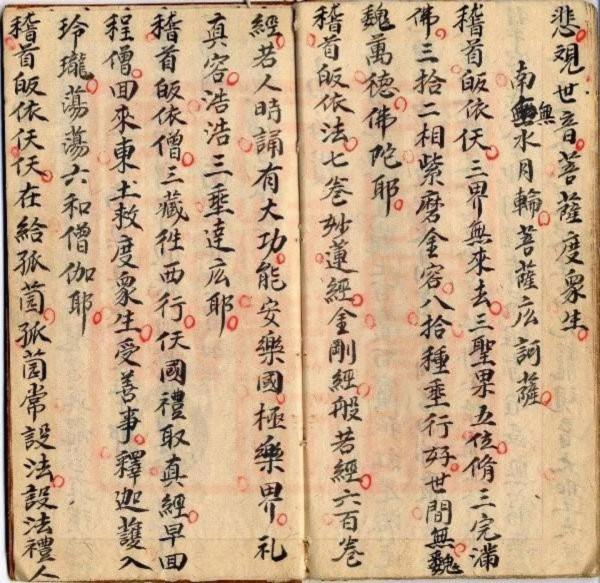 悲覌世音菩薩度衆生
南無水月輪菩薩広訶薩
稽首皈依仸三界無來去三聖果五位脩三完滿
佛三拾二相紫磨金容八拾種垂行好世間無魏
魏萬德佛陀耶
稽首皈依法七卷妙蓮經金剛經般若經六百卷
經若人時誦有大功能安樂國極樂界礼
真容浩浩三垂達広耶
稽首皈依僧三藏徃西行仸國禮取真經早回
程僧回來東土救度衆生受善事釋迦䕶入
玲瓏蕩蕩六和僧伽耶
稽首皈依仸仸在給孤茵孤茵常設法設法禮人